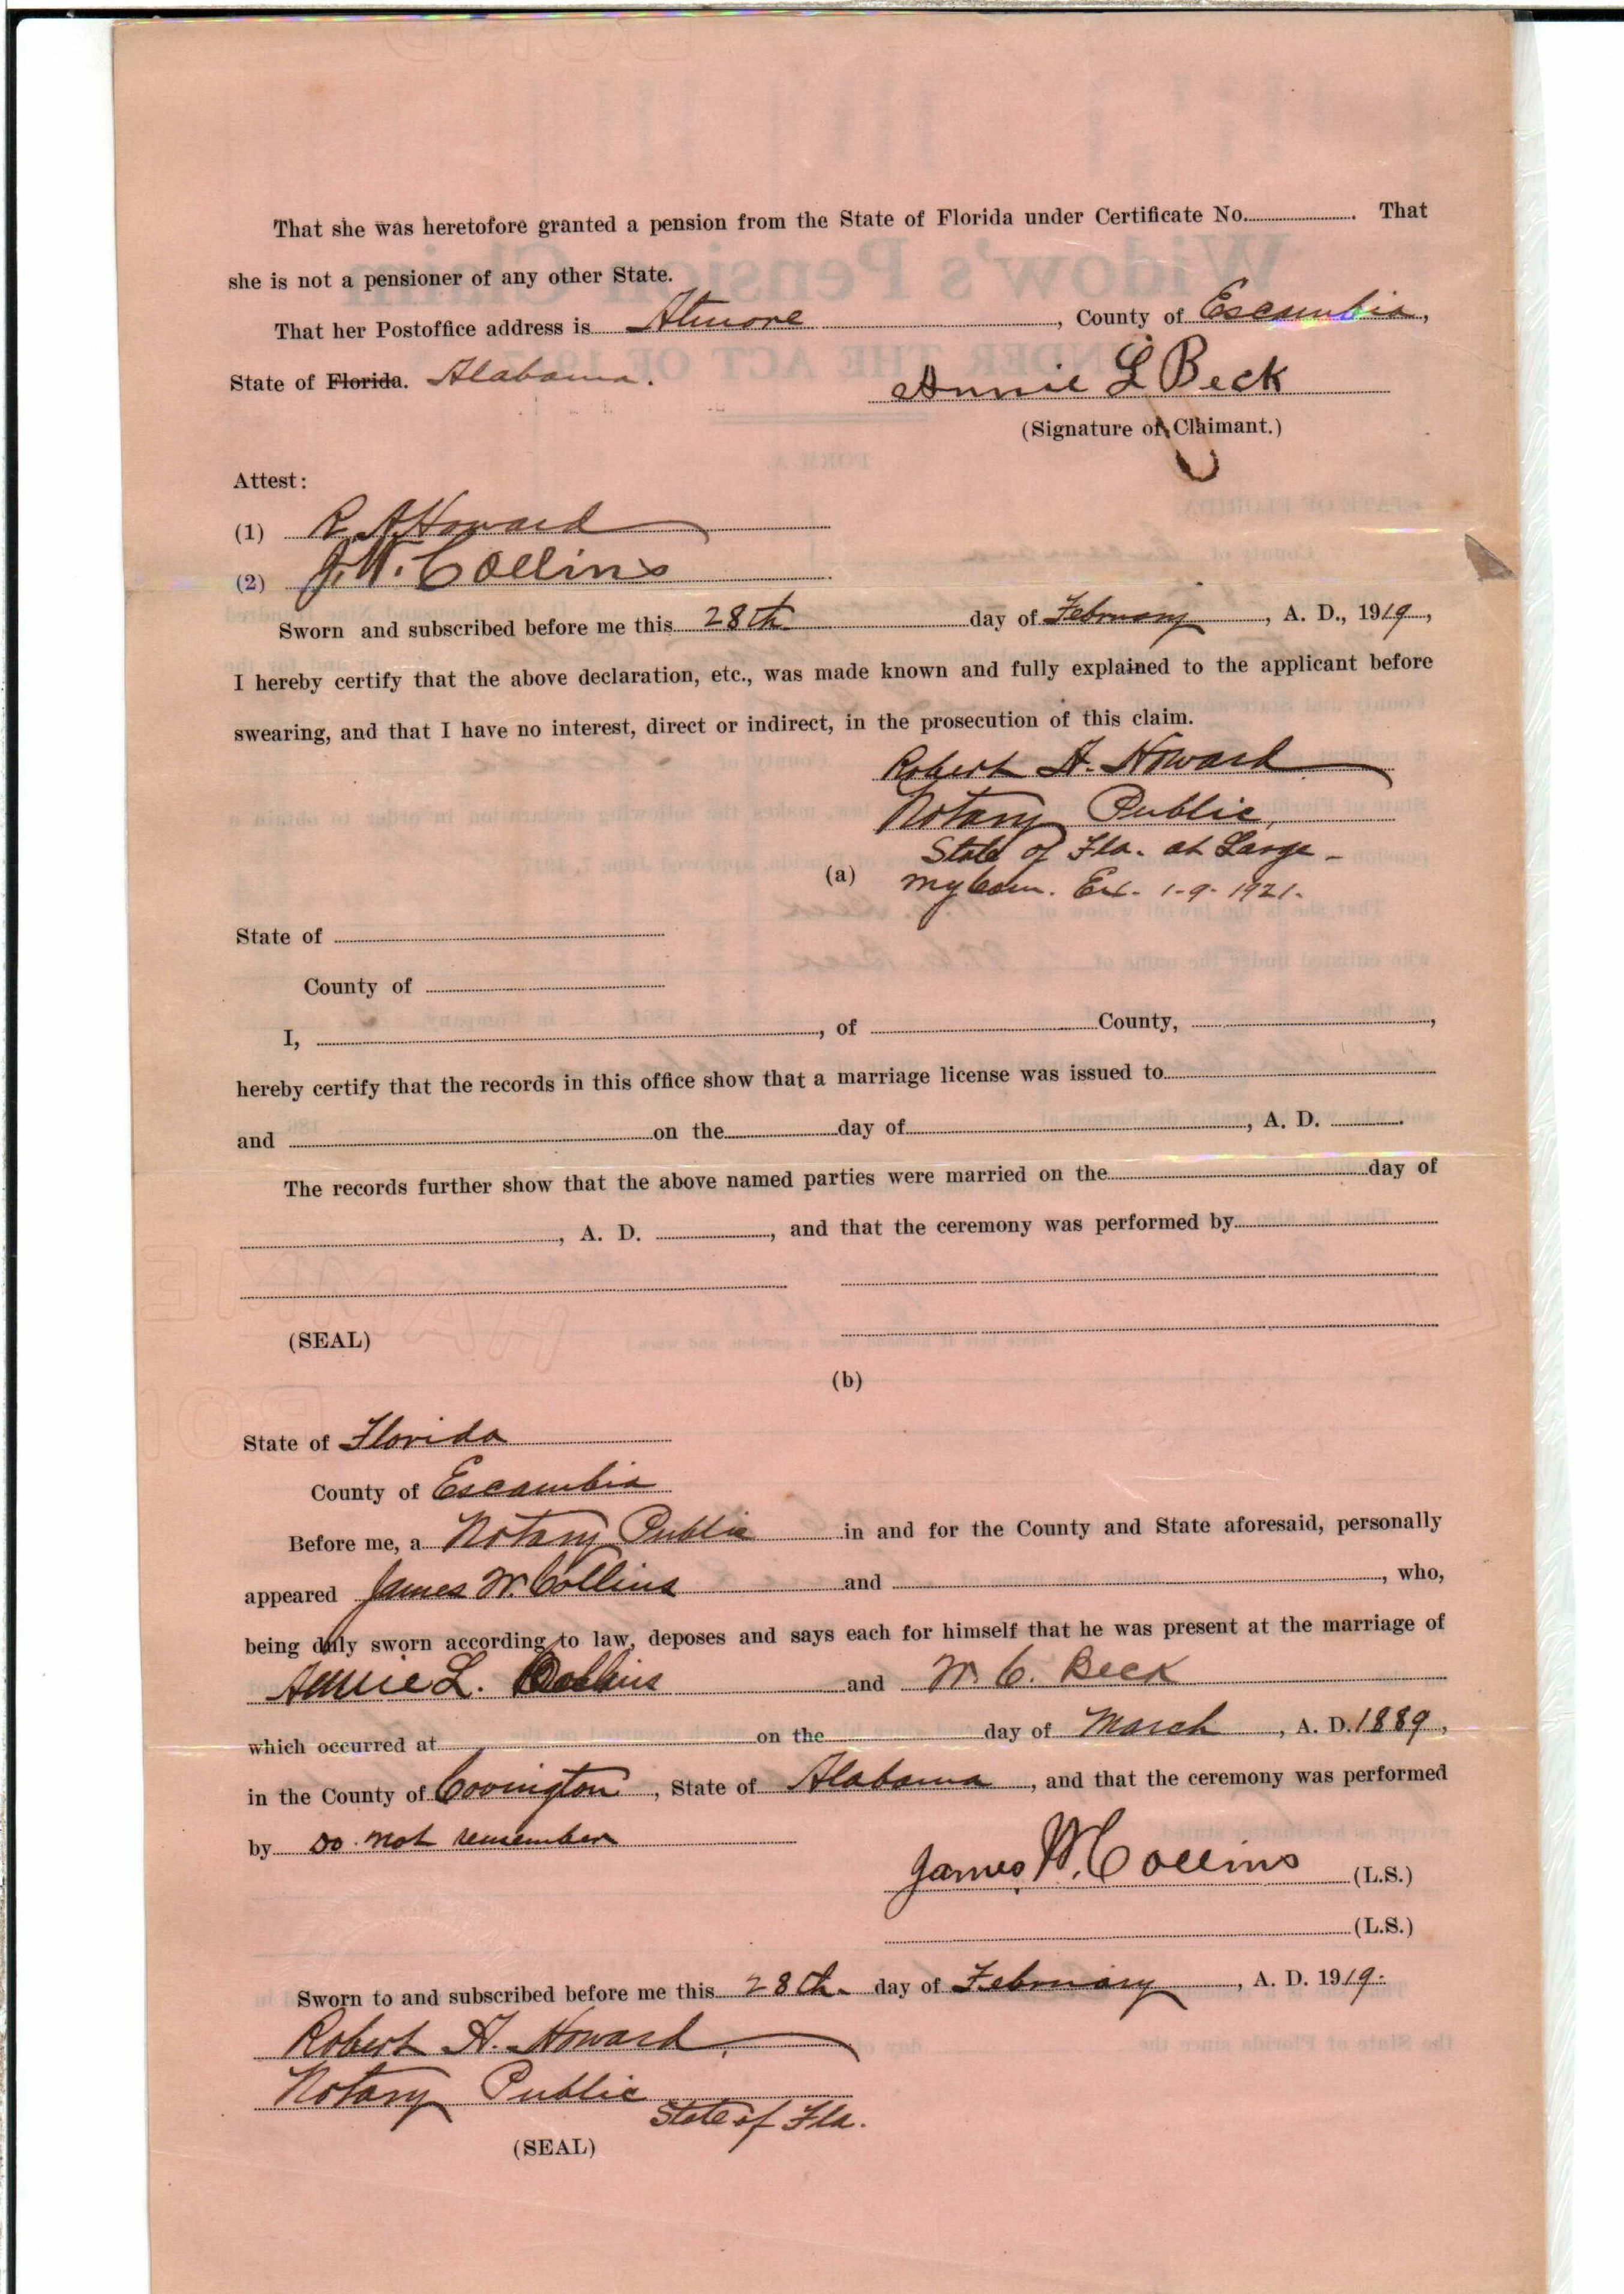 That she was heretofore granted a pension from the State of Florida under Certificate No. . That
she is not a pensioner of any other State.
That her Postoffice address is Atmore , County of Escambia,
State of Florida. Alabama.
Annie L Beck
(Signature of Claimant.)
Attest:
(1) R. A. Howard
(2) J. W. Collins
Sworn and subscribed before me this 28th day of February, A. D., 1919,
I hereby certify that the above declaration, etc., was made known and fully explained to the applicant before
swearing, and that I have no interest, direct or indirect, in the prosecution of this claim.
Robert A. Howard
Notary Public,
State of Fla. at Large -
(a) my Com. Ex. 1-9-1921.
State of
County of
I, , of County, ,
hereby certify that the records in this office show that a marriage license was issued to
and on the day of , A. D. .
The records further show that the above named parties were married on the day of
, A. D. , and that the ceremony was performed by
(SEAL)
(b)
State of Florida
County of Escambia
Before me, a Notary Public in and for the County and State aforesaid, personally
appeared James W. Collins and , who,
being duly sworn according to law, deposes and says each for himself that he was present at the marriage of
Annie L. Collins and W. C. Beck
which occurred at on the day of March , A. D. 1889,
in the County of Covington, State of Alabama, and that the ceremony was performed
by Do not remember
James W. Collins (L.S.)
(L.S.)
Sworn to and subscribed before me this 28th. day of February, A. D. 1919.
Robert A. Howard,
Notary Public
State of Fla.
(SEAL)